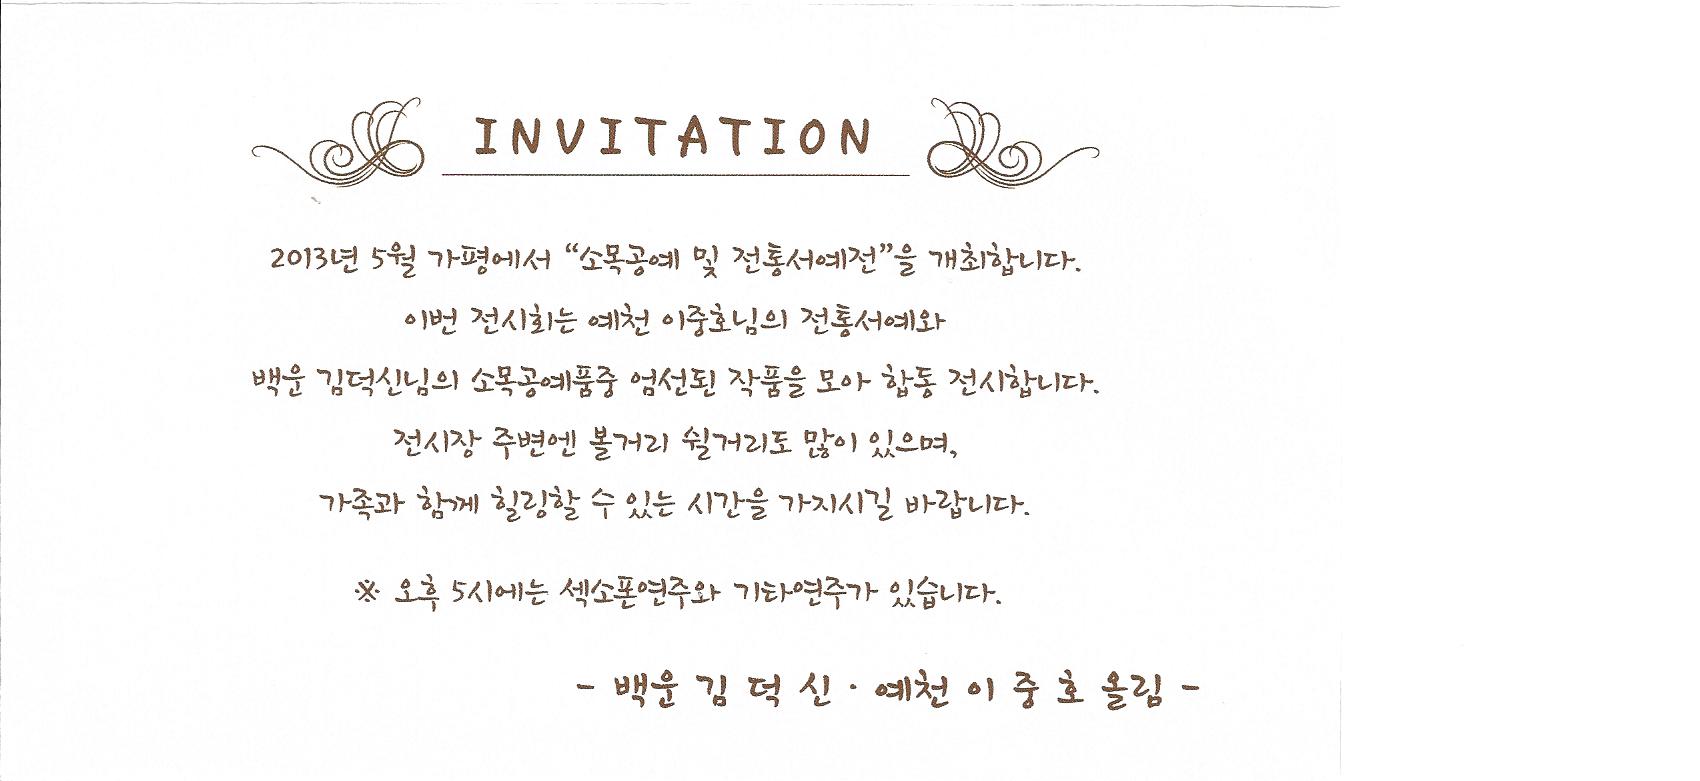 INVITATION
2013년 5월 가평에서 “소목공예 및 전통서예전”을 개최합니다.
이번 전시회는 예천 이중호님의 전통서예와
백운 김덕신님의 소목공예품중 엄선된 작품을 모아 합동 전시합니다.
전시장 주변엔 볼거리 쉴거리도 많이 있으며,
가족과 함께 힐링할 수 있는 시간을 가지시길 바랍니다.
※ 오후 5시에는 섹소폰연주와 기타연주가 있습니다.
- 백운 김 덕 신 · 예천 이 중 호 올림 -